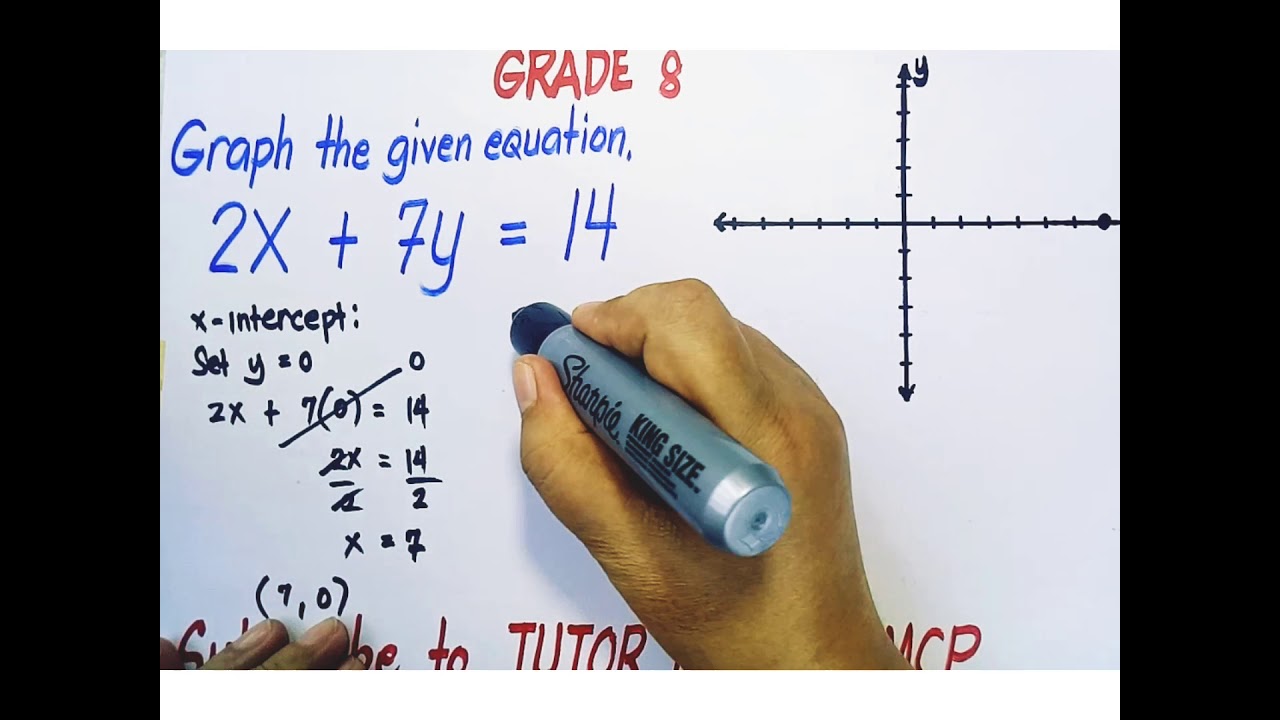 GRADE 8
Graph the given equation.
2X + 7y = 14
x-intercept:
Set y = 0
0
2x + 7(0) = 14
2x = 14
2 2
x = 7
(7, 0)
to TUTOR MCP
y
Sharpie
KING SIZE.